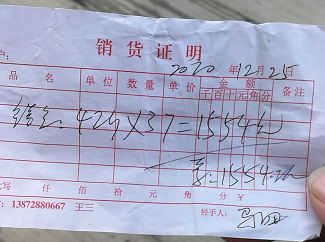 销货证明
2020年12月25日
品名 单位 数量 单价 金额 备注
千百十元角分
42吨×37=1554元
1554元
仟 佰 拾 元 角 分 ¥
13872880667 王三
经手人: